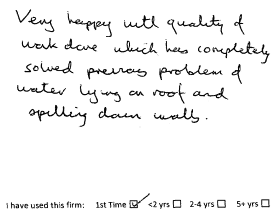 Very happy with quality of
work done which has completely
solved previous problem of
water lying on roof and
spilling down walls.
I have used this firm: 1st Time ☑ <2 yrs ☐ 2-4 yrs ☐ 5+ yrs ☐